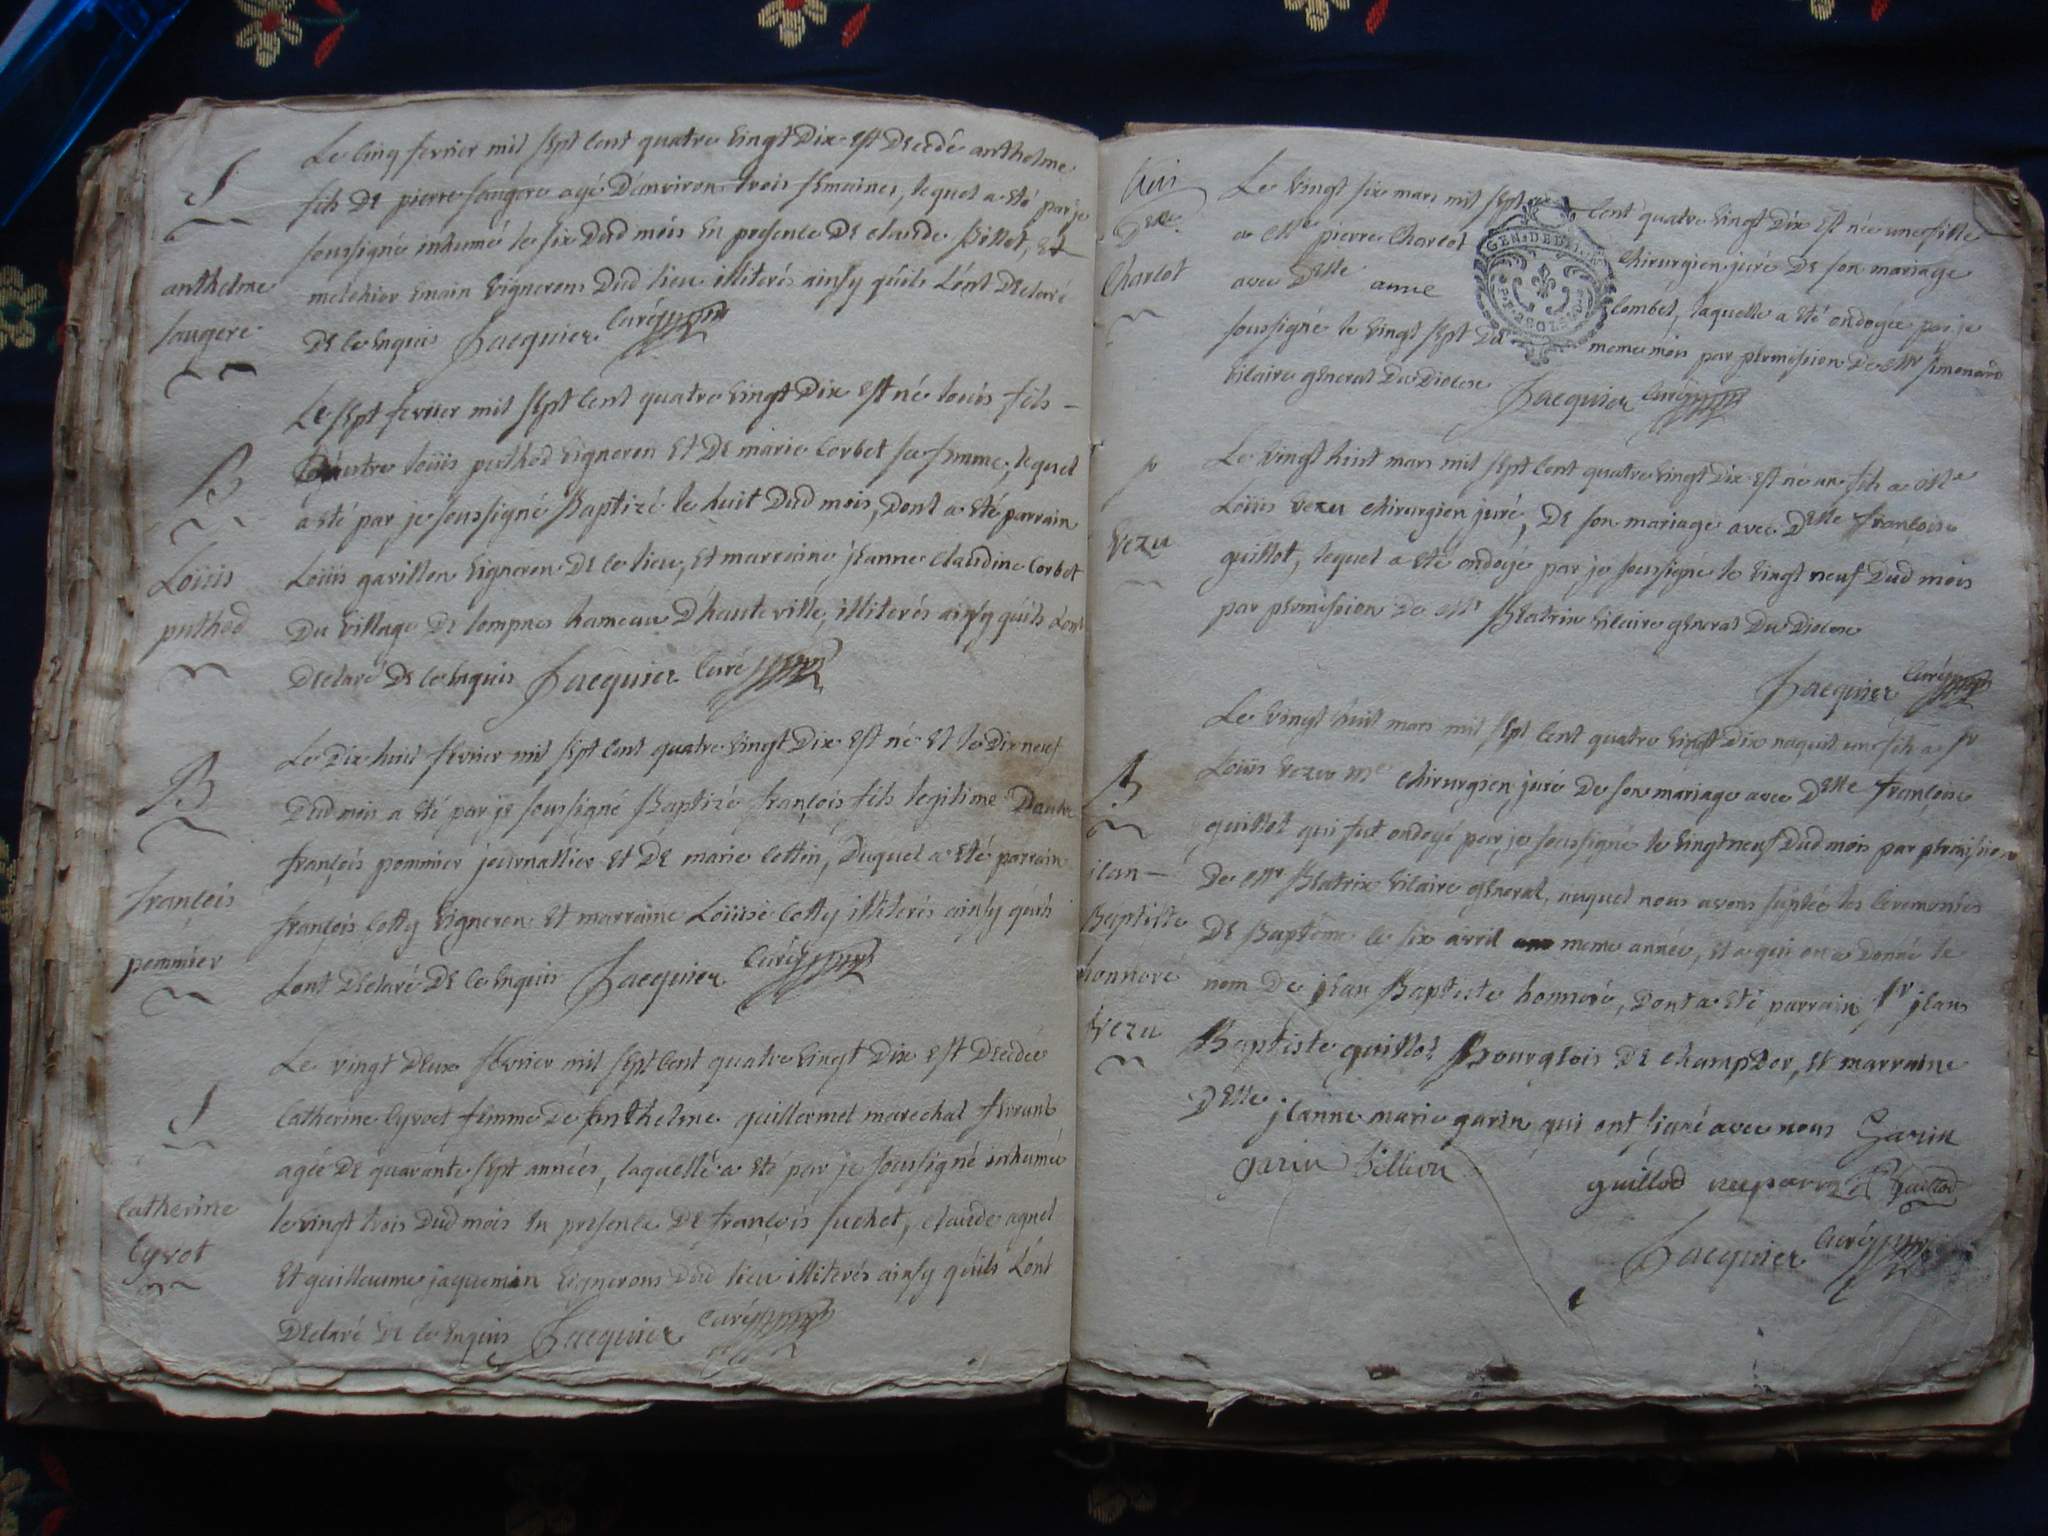 S
anthelme
saugere
Le cinq fevrier mil sept cent quatre vingt Dix est Decedé anthelme
fils De pierre saugere agé D'environ trois semaines, lequel a eté par je
soussigné inhumé le six Dud mois en presence De claude Billot, et
melchior Emain vignerons Dud lieu illiterés ainsy qu'ils L'ont Declaré
De ce enquis Jacquier curé
B
Loüis
puthod
Le sept fevrier mil sept cent quatre vingt Dix est né loüis fils
D'autre loüis puthod vigneron et De marie Corbet sa femme, lequel
a eté par je soussigné Baptizé le huit Dud mois, Dont a eté parrain
Loüis gavillon vigneron De ce lieu, et marraine jeanne claudine Corbet
Du village De lompnes hameau D'hauteville, illiterés ainsy qu'ils L'ont
Declaré De ce enquis Jacquier Curé
B
françois
pommier
Le Dix huit fevrier mil sept cent quatre vingt Dix est né et le Dix neuf
Dud mois a eté par je soussigné Baptizé françois fils legitime D'autre
françois pommier journallier et De marie Cottin, Duquel a eté parrain
françois Cotty vigneron et marraine Loüise Cotty illiterés ainsy qu'ils
L'ont Declaré De ce enquis Jacquier curé
S
Catherine
Cyvot
Le vingt Deux fevrier mil sept cent quatre vingt Dix est Decedée
Catherine Cyvoct femme De anthelme guillermet marechal ferrant
agée De quarante sept années, laquelle a eté par je soussigné inhumée
le vingt trois Dud mois en presence De françois suchet, claude agnel
et guilleaume jaquemin vignerons Dud lieu illiterés ainsy qu'ils L'ont
Declaré De ce enquis Jacquier curé
Delle
Charcot
Le vingt six mars mil sept cent quatre vingt Dix est née une fille
a Me pierre Charcot chirurgien juré De son mariage
avec Delle anne Combet, laquelle a eté ondoyée par je
soussigné le vingt sept Du meme mois par permission De Mr simonard
vicaire general Du Diocese Jacquier curé
GEN. DE DE
sr
Vezu
Le vingt huit mars mil sept cent quatre vingt Dix est né un fils a Me
Loüis Vezu chirurgien juré, De son mariage avec Delle françoise
guillot, lequel a eté ondoyé par je soussigné le vingt neuf Dud mois
par permission De Mr Beatrix vicaire general Du Diocese
Jacquier curé
B
jean
Baptiste
honnoré
Vezu
Le vingt huit mars mil sept cent quatre vingt Dix naquit un fils a sr
Loüis vezu me chirurgien juré De son mariage avec Delle françoise
guillot qui fut ondoyé par je soussigné le vingt neuf Dud mois par permission
De Mr Beatrix vicaire general, auquel nous avons supléé les Ceremonies
De Baptême le six avril meme année, et a qui on a Donné le
nom De jean Baptiste honnoré, Dont a eté parrain sr jean
Baptiste guillot Bourgeois De champdor, et marraine
Delle jeanne marie garin qui ont signé avec nous Garin
garin Billion guillod
Jacquier curé